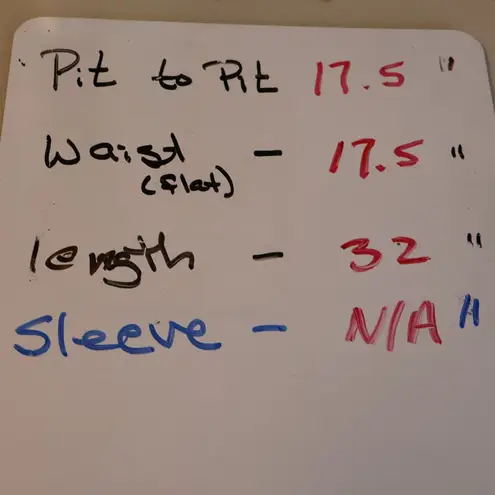 Pit to Pit 17.5 "
Waist - 17.5 "
(flat)
length - 32 "
Sleeve - N/A "